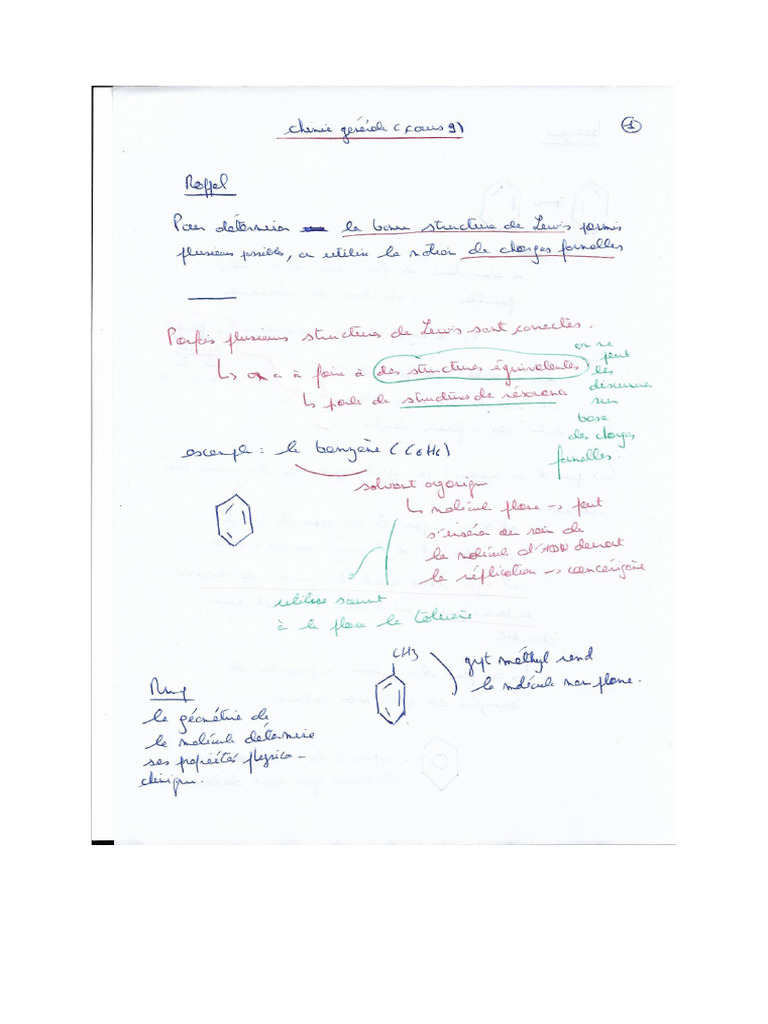 chimie générale (cours 9)
1
Rappel
Pour déterminer la bonne structure de Lewis parmis
plusieurs possibles, on utilise la notion de charges formelles
Parfois plusieurs structures de Lewis sont correctes.
↳ on a à faire à des structures équivalentes
↳ parle de structures de résonance
on ne
peut
les
discerner
sur
base
des charges
formelles.
exemple : le benzène (C6H6)
solvant organique
↳ molécule plane → peut
s'insérer au sein de
la molécule d'ADN durant
la réplication → cancérigène
utilise souvent
à la place le toluène
CH3
gpt méthyl rend
la molécule non plane.
Rmq
la géométrie de
la molécule détermine
ses propriétés physico-
chimique.